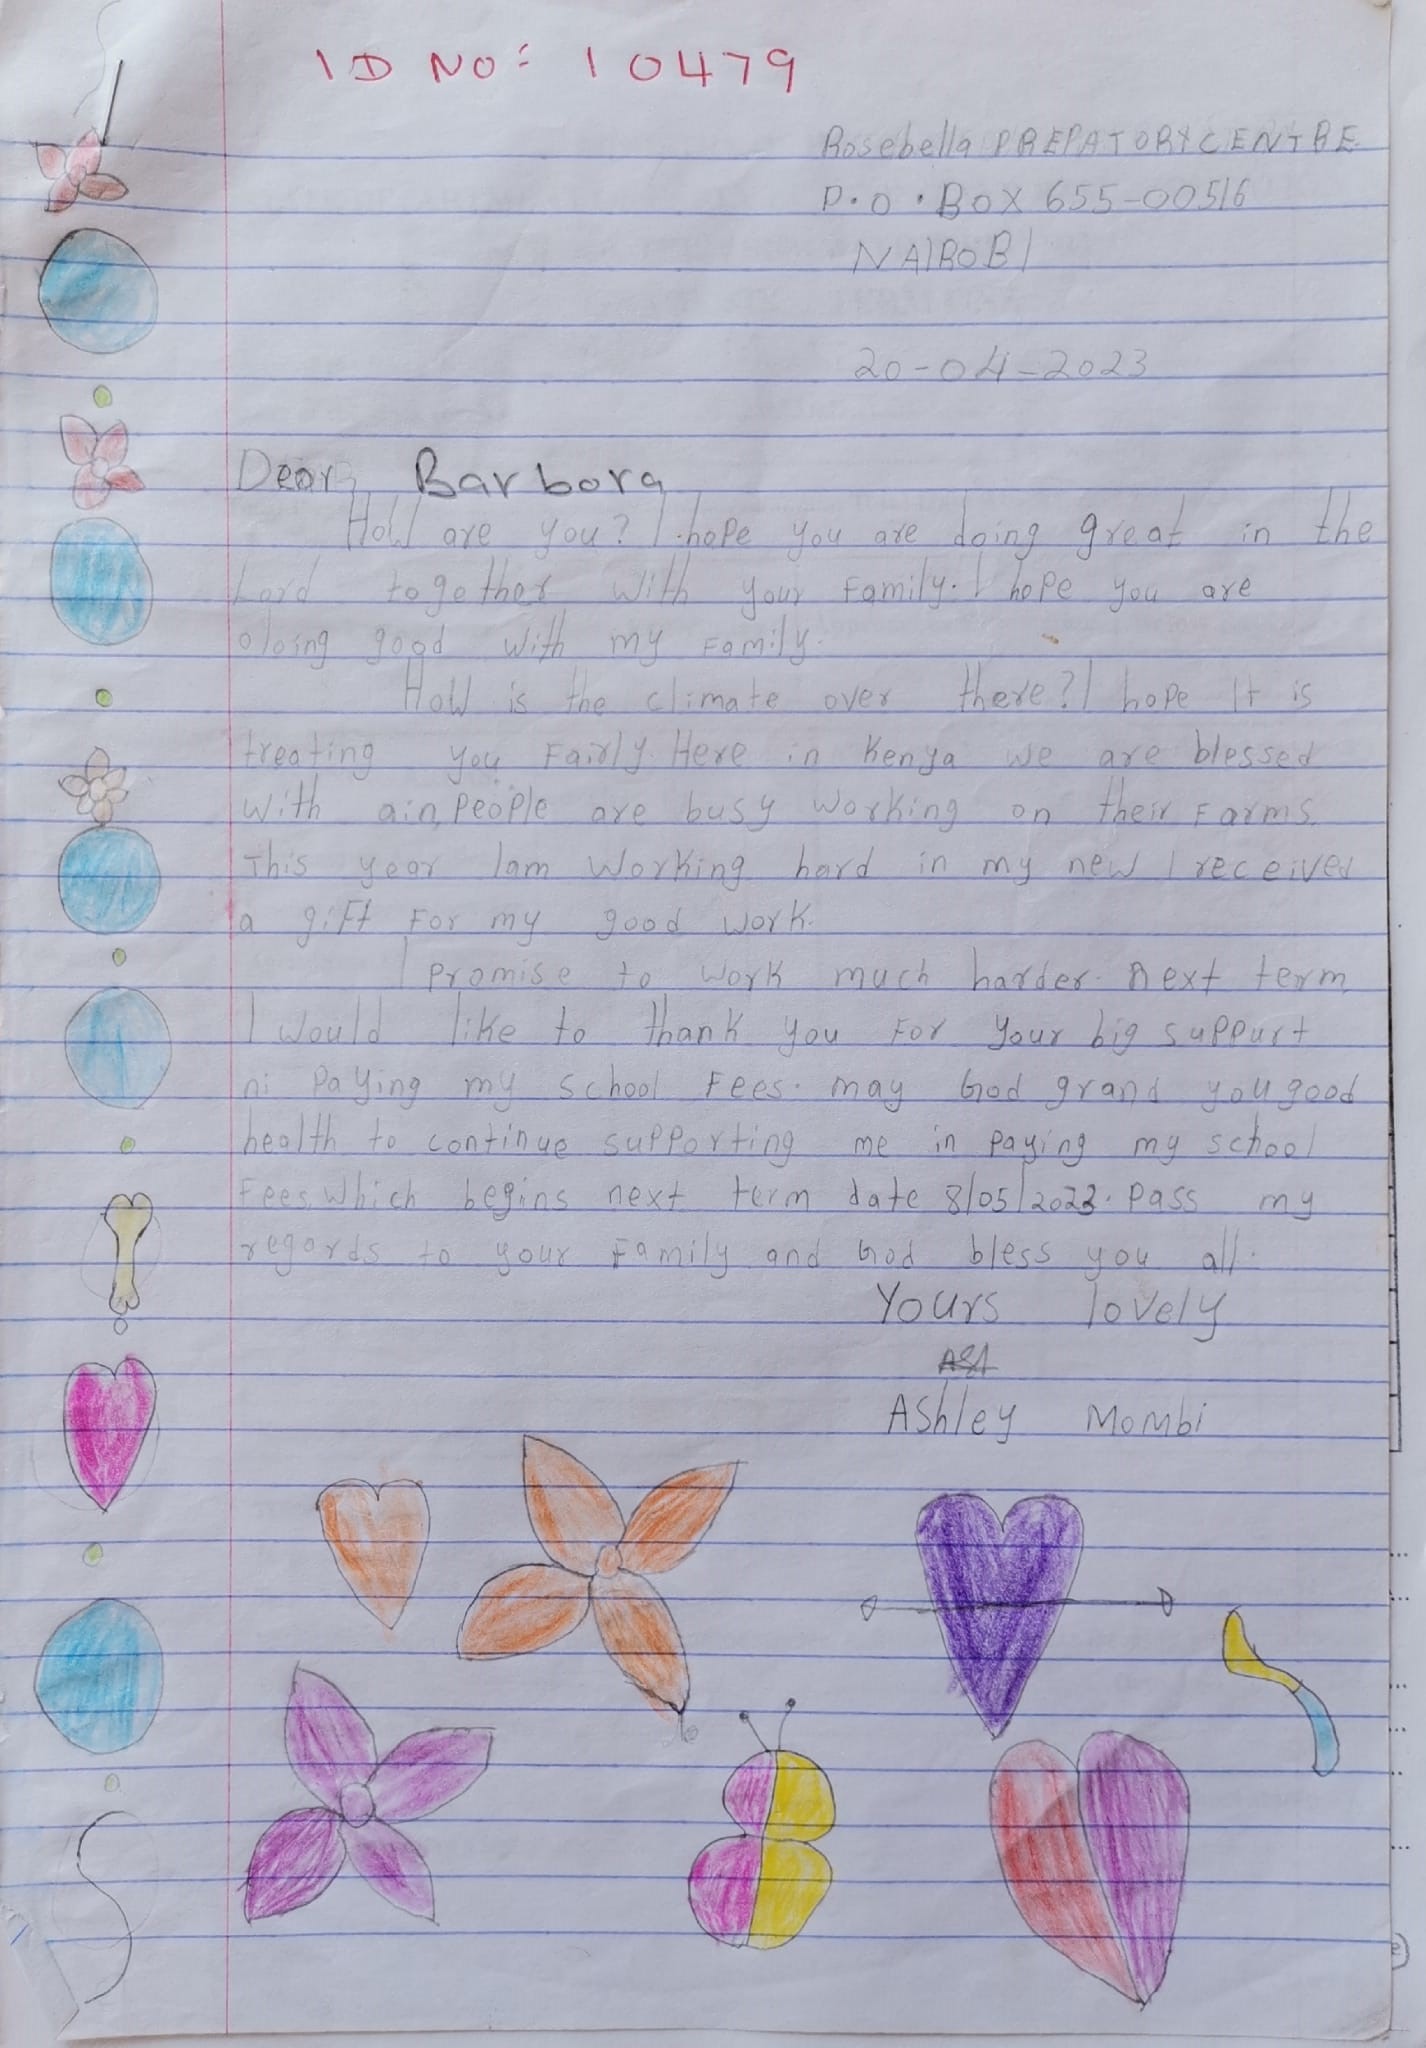 ID NO: 10479
Rosebella PREPATORY CENTRE
P.O. BOX 655-00516
NAIROBI
20-04-2023
Dear Barbora
How are you? I hope you are doing great in the
Lord together with your Family. I hope you are
doing good with my Family.
How is the climate over there? I hope It is
treating you Fairly. Here in Kenya we are blessed
With ain, People are busy working on their Farms.
This year Iam Working hard in my new I received
a gift For my good work.
I Promise to work much harder. Next term
I would like to thank you For your big suppurt
ni Paying my school Fees. may God grand you good
health to continue supporting me in paying my school
Fees. Which begins next term date 8/05/2023. Pass my
regards to your Family and God bless you all.
Yours lovely
Ashley Mombi